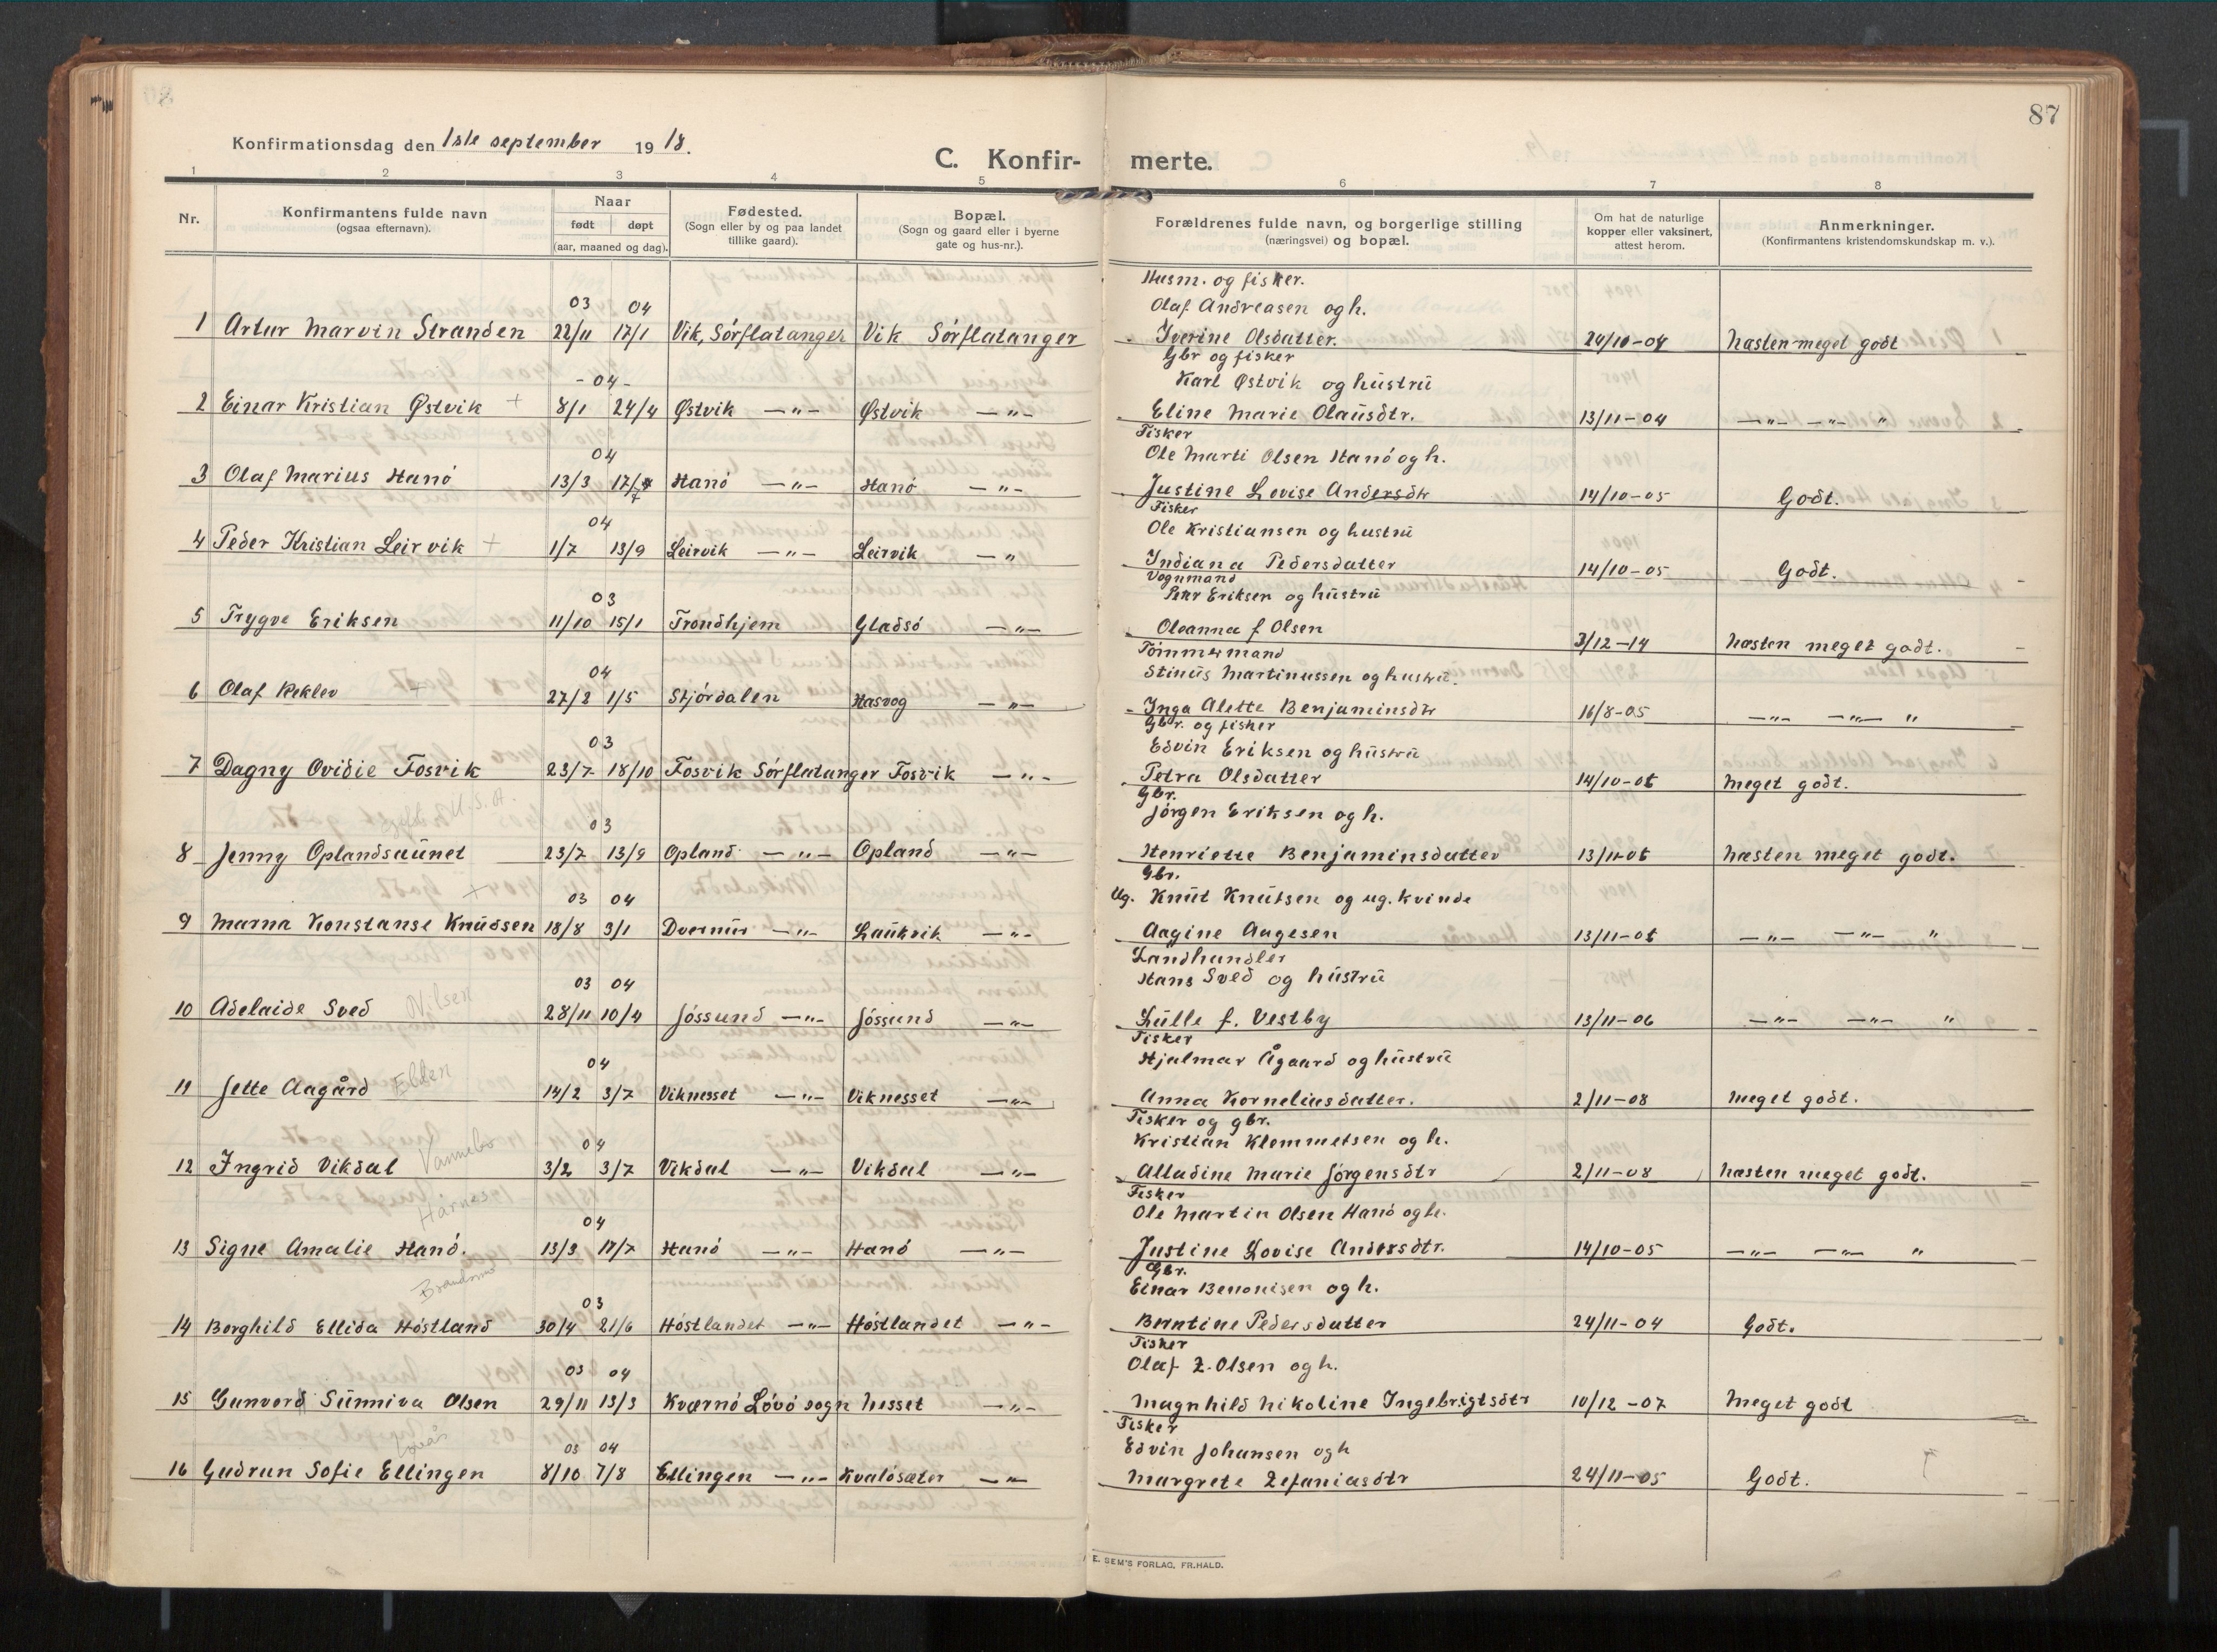 87
Konfirmationsdag den 1ste september 1918.
C. Konfir- merte.
1 2 3 4 5 6 7 8
Nr.
Konfirmantens fulde navn
(ogsaa efternavn).
Naar
født døpt
(aar, maaned og dag).
Fødested.
(Sogn eller by og paa landet
tillike gaard).
Bopæl.
(Sogn og gaard eller i byerne
gate og hus-nr.).
Forældrenes fulde navn, og borgerlige stilling
(næringsvei) og bopæl.
Om hat de naturlige
kopper eller vaksinert,
attest herom.
Anmerkninger.
(Konfirmantens kristendomskundskap m. v.).
Husm. og fisker.
03 04 Olaf Andreasen og h.
1 Artur Marvin Stranden 22/11 17/1 Vik, Sörflatanger Vik Sörflatanger Iverine Olsdatter. 24/10-04 Næsten meget godt
Gbr og fisker
-04- Karl Østvik og hustru
2 Einar Kristian Østvik + 8/1 24/4 Østvik —"— Østvik —"— Eline Marie Olausdtr. 13/11-04 —"— —"— "
Fisker
04 Ole Marti Olsen Hanö og h.
3 Olaf Marius Hanö 13/3 17/7 Hanö —"— Hanö —"— Justine Lovise Andersdtr 14/10-05 Godt.
Fisker
04 Ole Kristiansen og hustru
4 Peder Kristian Leirvik + 1/7 13/9 Leirvik —"— Leirvik —" Indiana Pedersdatter 14/10-05 Godt.
Vognmand
03 Peter Eriksen og hustru
5 Trygve Eriksen 11/10 15/1 Trondhjem Gladsö —"— Oleanna f Olsen 3/12-14 Næsten meget godt.
Tömmermand
04 Stinus Martinussen og hustru.
6 Olaf Reklev + 27/2 1/5 Stjördalen Hasvog —"— Inga Alette Benjaminsdtr 16/8-05 —"— —"— "
Gbr. og fisker
03 Edvin Eriksen og hustru
7 Dagny Ovidie Fosvik 23/7 18/10 Fosvik Sörflatanger Fosvik —"— Petra Olsdatter 14/10-05 Meget godt.
U.S.A.
Gbr.
03 Jörgen Eriksen og h.
8 Jenny Oplandsaunet 23/7 13/9 Opland —"— Opland —"— Henriette Benjaminsdatter 13/11-05 Næsten meget godt.
Gbr.
+ 03 04 Ug. Knut Knutsen og ug. kvinde
9 Marna Konstanse Knudsen 18/8 3/1 Dvernur —"— Laukvik —"— Aagine Aagesen 13/11-05 —"— —"— "
Landhandler
03 04 Hans Sved og hustru
10 Adelaide Sved Nilsen 28/11 10/4 Jössund —"— Jössund —"— Lulle f. Vestby 13/11-06 —"— —"— "
Fisker
04 Hjalmar Ågaard og hustru
11 Jette Aagård Elden 14/2 3/7 Viknesset —"— Viknesset —"— Anna Korneliusdatter. 2/11-08 Meget godt.
Fisker og gbr.
04 Kristian Klemmetsen og h.
12 Ingrid Vikdal Vannebo 3/2 3/7 Vikdal —"— Vikdal —"— Alladine Marie Jörgensdtr 2/11-08 Næsten meget godt.
Fisker
Hårnes 04 Ole Martin Olsen Hanö og h.
13 Signe Amalie Hanö. 13/3 17/7 Hanö —"— Hanö —"— Justine Lovise Andersdtr. 14/10-05 —"— —"— "
Gbr.
Brandsmo 03 Einar Benonisen og h.
14 Borghild Ellida Höstland 30/4 21/6 Höstlandet —"— Höstlandet —"— Berntine Pedersdatter 24/11-04 Godt.
Fisker
03 04 Olaf Z. Olsen og h.
15 Gunvord Sunniva Olsen 29/11 13/3 Kværnö Lövö sogn Nesset —"— Magnhild Nikoline Ingebrigtsdtr 10/12-07 Meget godt
Fisker
03 04 Edvin Johansen og h
16 Gudrun Sofie Ellingen 8/10 7/8 Ellingen —"— Kvalösæter —"— Margrete Zefaniasdtr 24/11-05 Godt.
E. SEM'S FORLAG, FR.HALD.